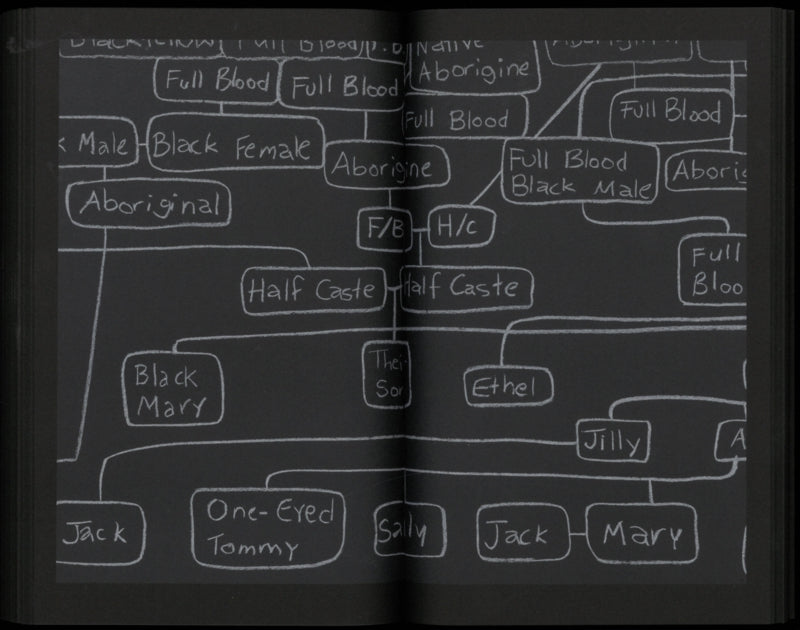 Full Blood
Native
Aborigine
Full Blood
Full Blood
Full Blood
Full Blood
Male
Black Female
Aborigine
Full Blood
Black Male
Aboriginal
F/B
H/C
Full
Half Caste
Half Caste
Black
Mary
Ethel
Jilly
A
Jack
One-Eyed
Tommy
Sally
Jack
Mary